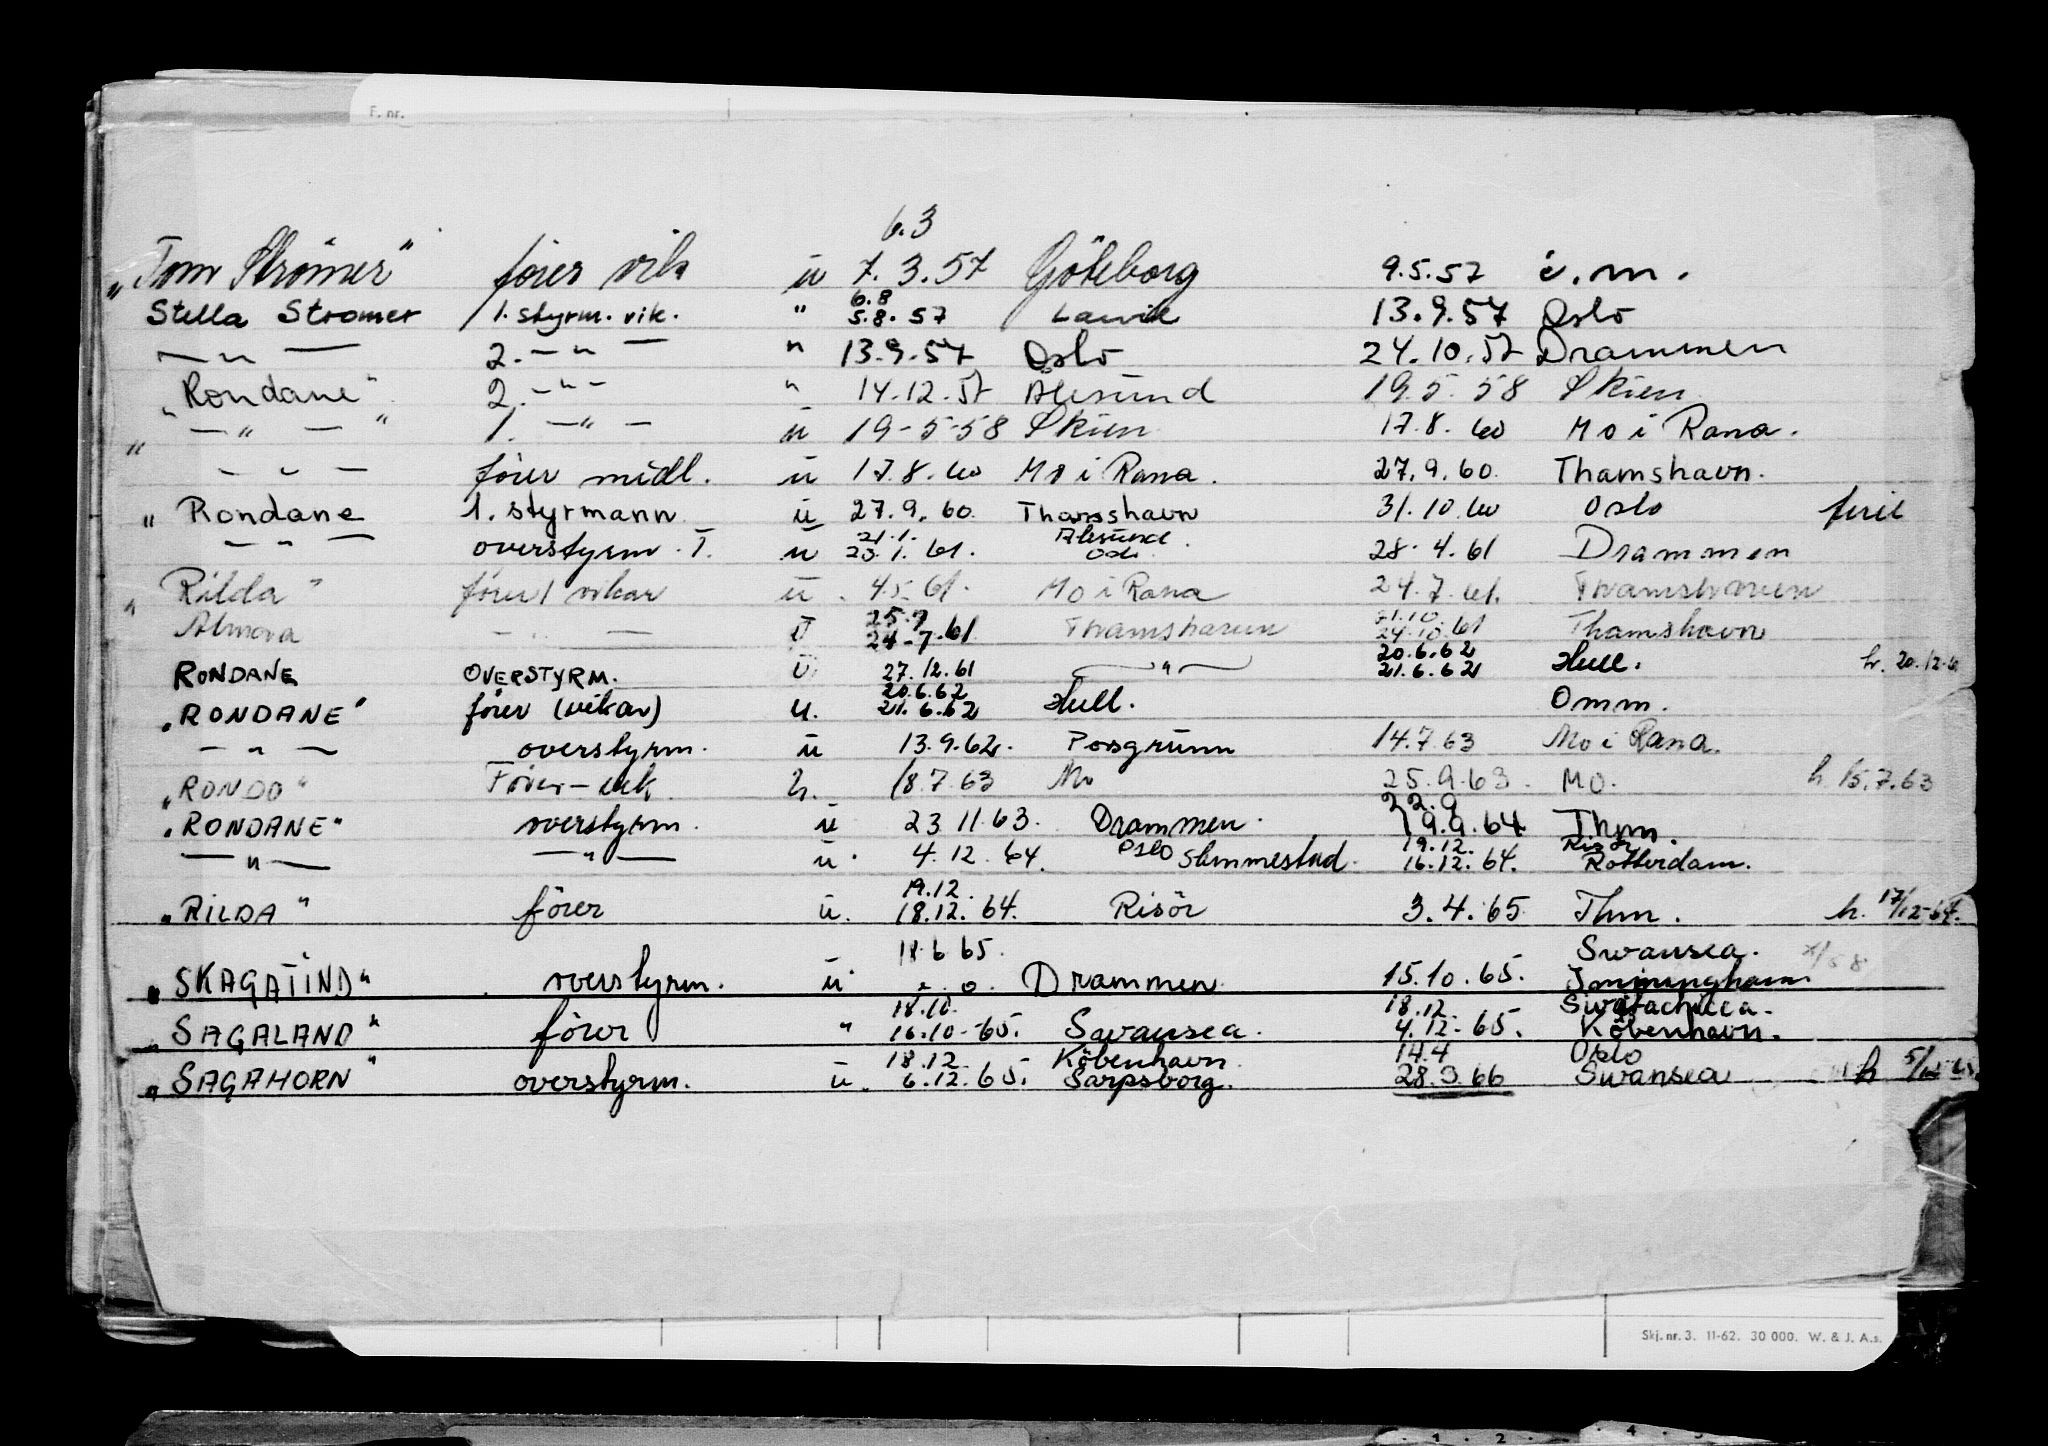 F. nr.
6.3
"Tom Strømer" fører vik u 7.3.57 Göteborg 9.5.57 i.m.
6.8
Stella Strømer 1. styrm. vik. " 5.8.57 Larvik 13.9.57 Oslo
— " — 2. — " — " 13.9.57 Oslo 24.10.57 Drammen
"Rondane" 2. — " — " 14.12.57 Ålesund 19.5.58 Skien
" — " — " 1. — " — u 19-5-58 Skien 17.8.60 Mo i Rana.
— " — fører midl. u 17.8.60 Mo i Rana. 27.9.60. Thamshavn.
" Rondane 1. styrmann u 27.9.60. Thamshavn 31.10.60 Oslo ferie
21.1. Ålesund
— " — overstyrm. T. u 20.1.61. Oslo. 28.4.61 Drammen
"Rilda" fører/vikar u. 4.5.61. Mo i Rana 24.7.61. Thamshavn
25.7 21.10
Almora — " — u 24-7-61 Thamshavn 24.10.61 Thamshavn
20.6.62
RONDANE OVERSTYRM. u. 27.12.61 — " — 21.6.62 Hull. h. 20.12.6
20.6.62
"RONDANE" fører (vikar) u. 21.6.62 Hull. Omm.
— " — overstyrm. u 13.9.62. Porsgrunn 14.7.63 Mo i Rana.
"RONDO" Fører-vik. h. 18.7.63 Mo 25.9.63. MO. h. 15.7.63
22.9
"RONDANE" overstyrm. u 23.11.63. Drammen. 19.9.64 Thm.
Oslo 19.12. Risör
— " — — " — u. 4.12.64. Slemmestad. 16.12.64. Rotterdam.
19.12.
"RILDA" fører u. 18.12.64. Risör 3.4.65 Thm. h. 17/12-64.
18.6.65. Swansea.
"SKAGATIND" overstyrm. u. Drammen 15.10.65. Immingham
18.10. 18.12.
"SAGALAND" fører " 16.10-65. Swansea. 4.12-65. København.
18.12. København 14.4 Oslo
"SAGAHORN" overstyrm. u. 6.12.65. Sarpsborg. 28.3.66 Swansea h 5/12-65.
Skj. nr. 3. 11-62. 30 000. W. & J. A.s.